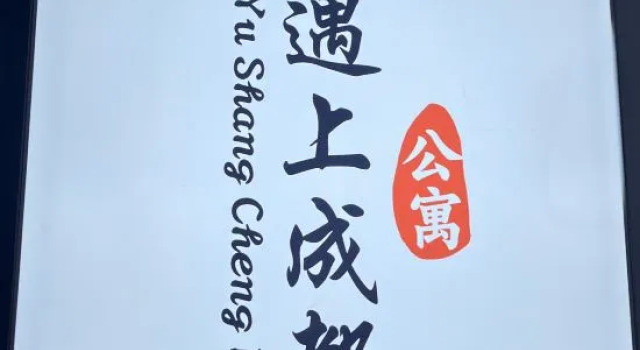 遇上成
公寓
Yu Shang Cheng